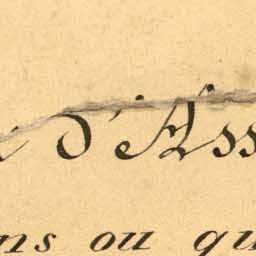 d'Ass
ns ou qu